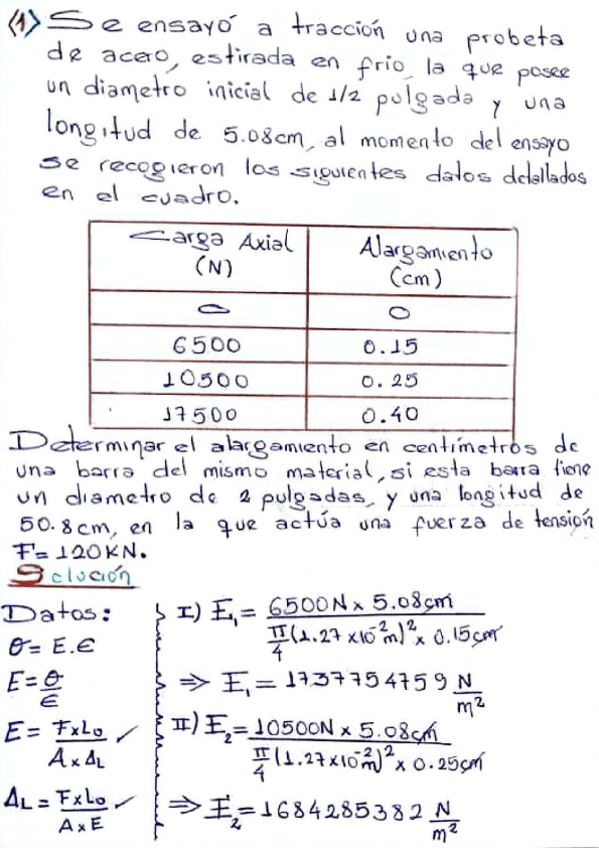 (1) Se ensayó a tracción una probeta
de acero, estirada en frio la que posee
un diametro inicial de 1/2 pulgada y una
longitud de 5.08cm, al momento del ensayo
se recogieron los siguientes datos detallados
en el cuadro.
Carga Axial (N) | Alargamiento (cm)
0 | 0
6500 | 0.15
10500 | 0.25
17500 | 0.40
Determinar el alargamiento en centímetros de
una barra del mismo material, si esta barra tiene
un diametro de 2 pulgadas, y una longitud de
50.8cm, en la que actúa una fuerza de tensión
F=120KN.
Solución
Datos:
θ= E.ϵ
E=θ/ϵ
E= FxL₀/AxΔL ✓
ΔL=FxL₀/AxE ✓
I) E₁= 6500N x 5.08cm / π/4(1.27 x10⁻²m)² x 0.15cm
⇒ E₁=1737754759 N/m²
II) E₂=10500N x 5.08cm / π/4(1.27x10⁻²m)² x 0.25cm
⇒ E₂=1684285382 N/m²